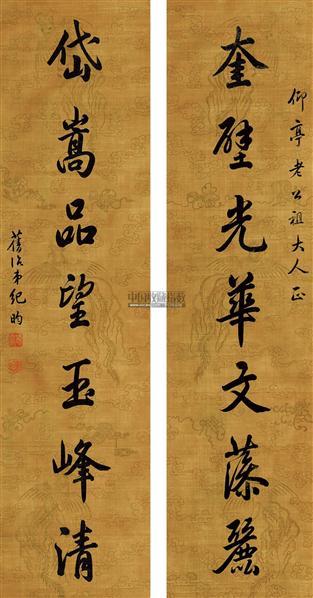 仰亭老公祖大人正
奎壁光華文藻麗
岱嵩品望玉峰清
舊治弟紀昀
中国收藏指数